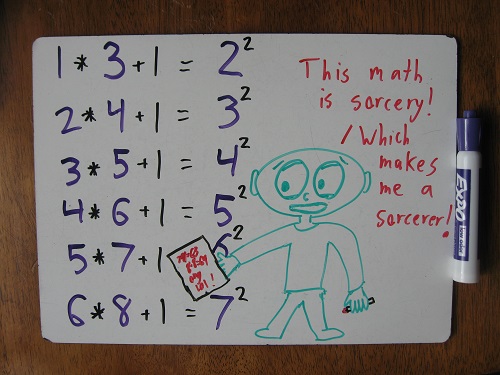 1 * 3 + 1 = 2²
2 * 4 + 1 = 3²
3 * 5 + 1 = 4²
4 * 6 + 1 = 5²
5 * 7 + 1 6²
6 * 8 + 1 = 7²
This math
is sorcery!
/Which
makes
me a
sorcerer!
101!
EXPO